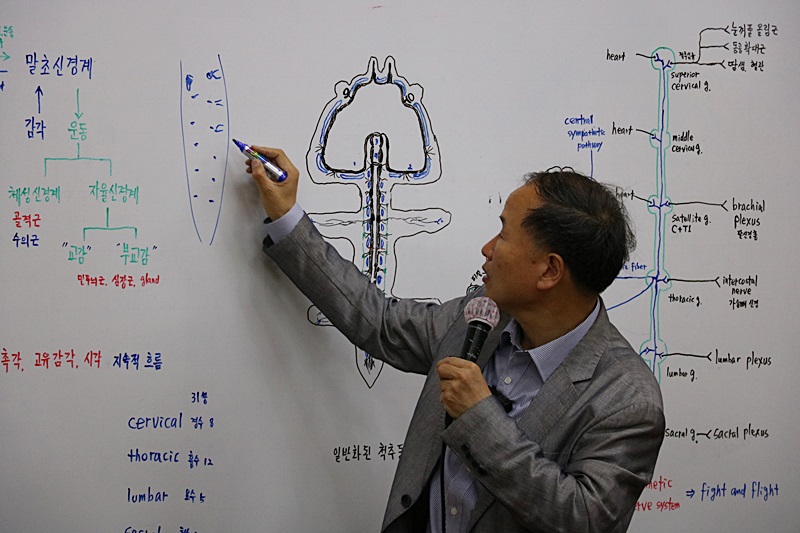 말초신경계
감각
운동
체성신경계
자율신경계
골격근
수의근
"교감"
"부교감"
민무늬근, 심장근, gland
촉각, 고유감각, 시각
지속적 흐름
31쌍
cervical 경수 8
thoracic 흉수 12
lumbar 요수 5
일반화된 척추동
central
sympathetic
pathway
heart
superior
cervical g.
눈꺼풀 올림근
동공확대근
땀샘, 혈관
heart
middle
cervical g.
heart
satellite g.
C+T1
brachial
plexus
fiber
thoracic g.
intercostal
nerve
lumbar g.
lumbar plexus
sacral g.
sacral plexus
nerve system
⇒ fight and flight